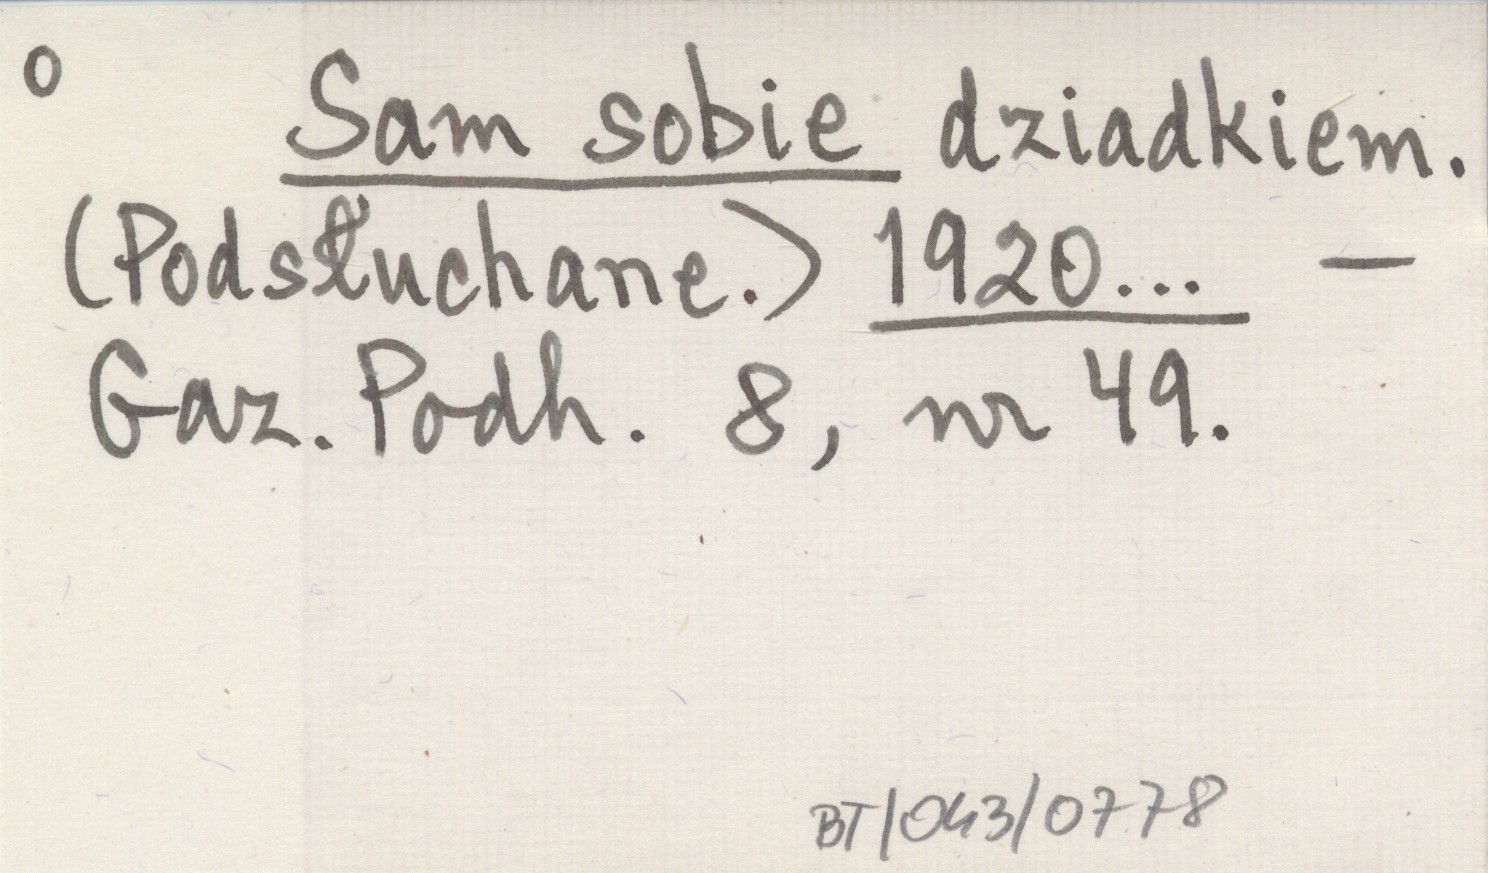 o Sam sobie dziadkiem.
(Podsłuchane.) 1920... —
Gaz. Podh. 8, nr 49.
BT/043/0778